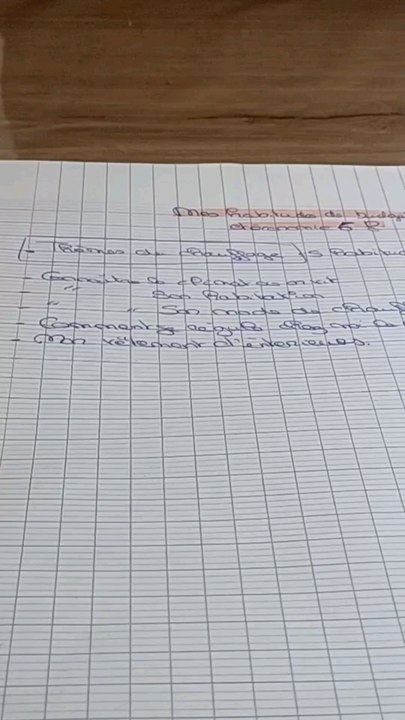 Mes habitudes de budge
économie 6 R
(- Thèmes de chauffage) 5 habitud
- Connaître le climat où on vit
- " Son habitation
- " " Son mode de chauff
- Comment régule
- Mon vêtement d'intérieur.